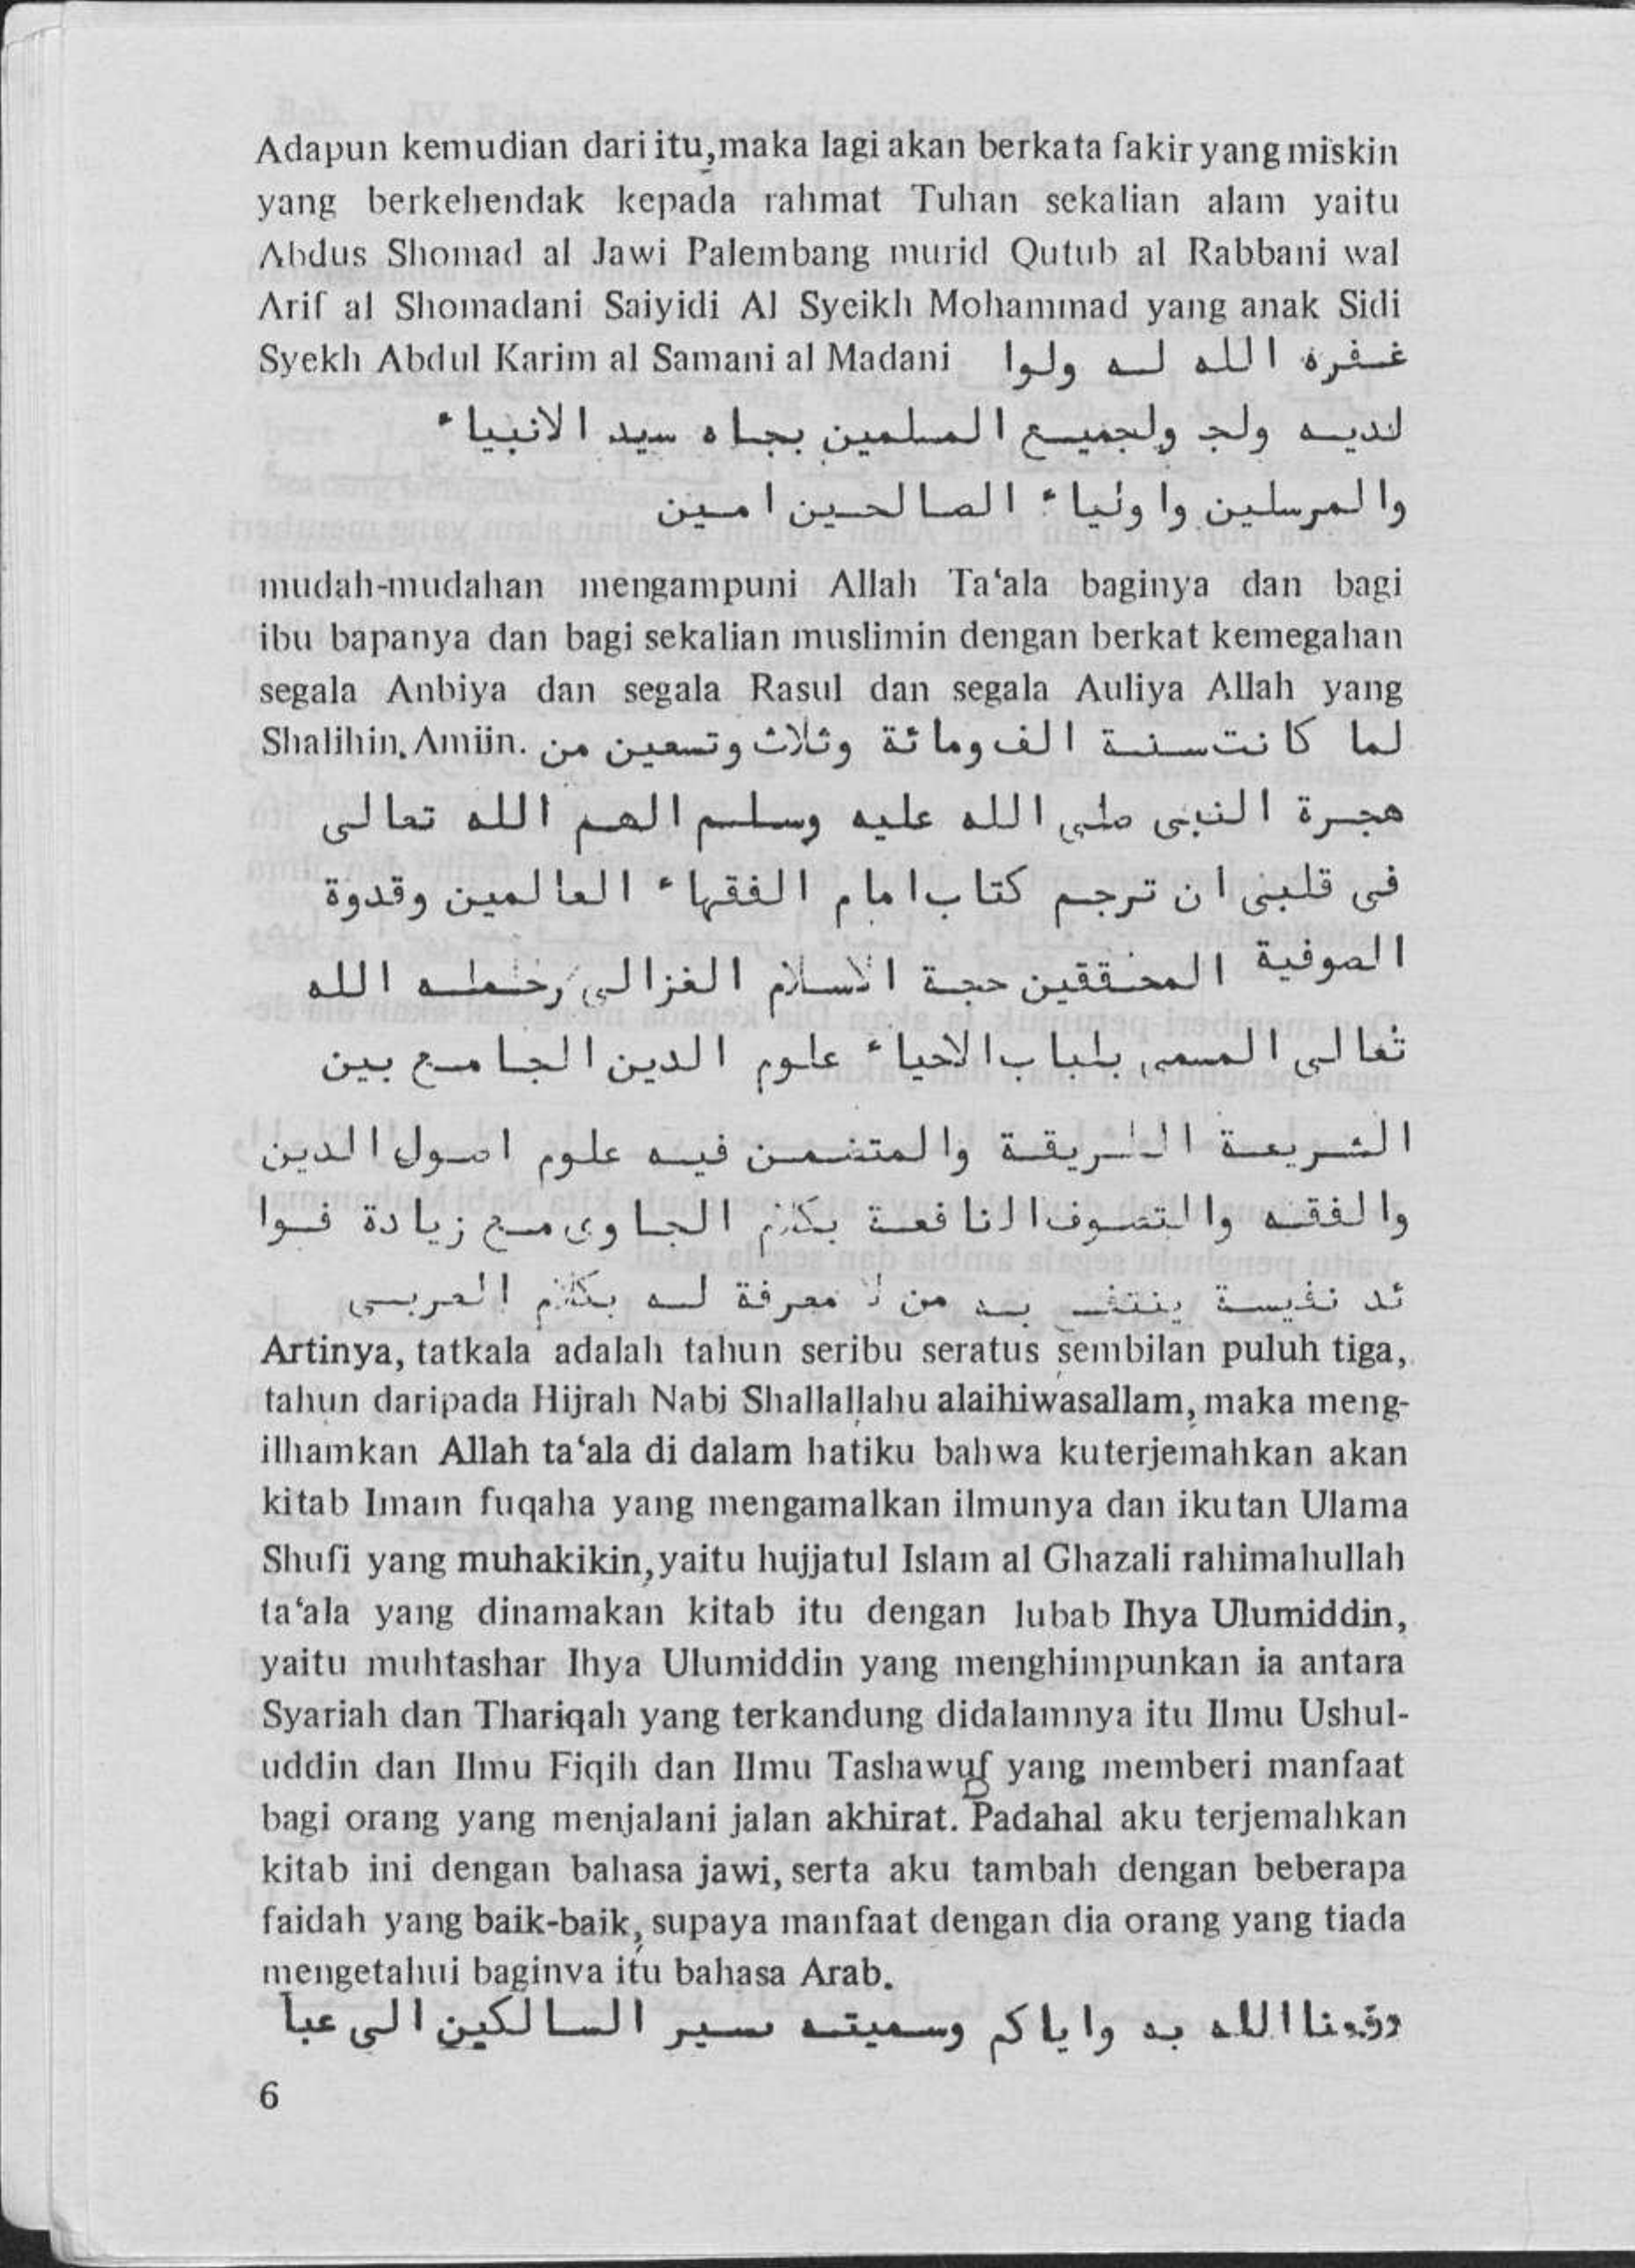 Adapun kemudian dari itu, maka lagi akan berkata fakir yang miskin
yang berkehendak kepada rahmat Tuhan sekalian alam yaitu
Abdus Shomad al Jawi Palembang murid Qutub al Rabbani wal
Arif al Shomadani Saiyidi Al Syeikh Mohammad yang anak Sidi
Syekh Abdul Karim al Samani al Madani غفره الله له ولوا
لديه ولجميع المسلمين بجاه سيد الانبياء
والمرسلين واولياء الصالحين امين
mudah-mudahan mengampuni Allah Ta‘ala baginya dan bagi
ibu bapanya dan bagi sekalian muslimin dengan berkat kemegahan
segala Anbiya dan segala Rasul dan segala Auliya Allah yang
Shalihin. Amiin. لما كانت سنة الف ومائة وثلاث وتسعين من
هجرة النبى صلى الله عليه وسلم الهم الله تعالى
فى قلبى ان ترجم كتاب امام الفقهاء العالمين وقدوة
الصوفية المحققين حجة الاسلام الغزالى الله
تعالى المسمى بلباب الاحياء علوم الدين الجامع بين
الشريعة الطريقة والمتضمن فيه علوم اصول الدين
والفقه والتصوف النافعة بكلام الجاوى مع زيادة فوا
ئد نفيسة ينتفع به من لا معرفة له بكلام العربى
Artinya, tatkala adalah tahun seribu seratus sembilan puluh tiga,
tahun daripada Hijrah Nabi Shallallahu alaihiwasallam, maka meng-
ilhamkan Allah ta‘ala di dalam hatiku bahwa kuterjemahkan akan
kitab Imam fuqaha yang mengamalkan ilmunya dan ikutan Ulama
Shufi yang muhakikin, yaitu hujjatul Islam al Ghazali rahimahullah
ta‘ala yang dinamakan kitab itu dengan lubab Ihya Ulumiddin,
yaitu muhtashar Ihya Ulumiddin yang menghimpunkan ia antara
Syariah dan Thariqah yang terkandung didalamnya itu Ilmu Ushul-
uddin dan Ilmu Fiqih dan Ilmu Tashawuf yang memberi manfaat
bagi orang yang menjalani jalan akhirat. Padahal aku terjemahkan
kitab ini dengan bahasa jawi, serta aku tambah dengan beberapa
faidah yang baik-baik, supaya manfaat dengan dia orang yang tiada
mengetahui baginva itu bahasa Arab.
الله به واياكم وسميته سير السالكين الى عبا
6